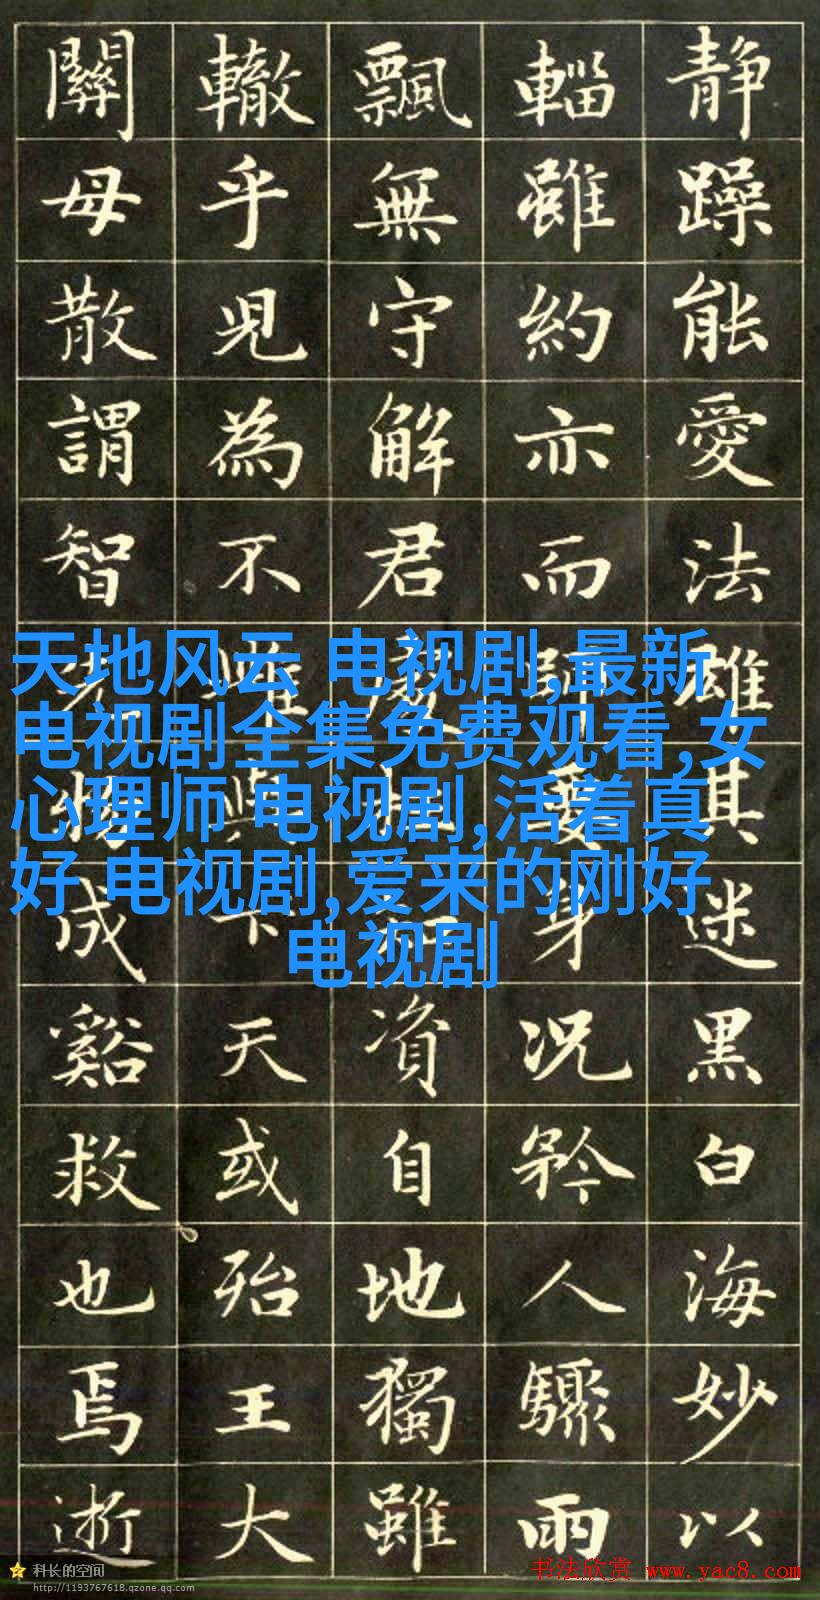 静躁能愛法雄其迷黑白海妙以
輜雖約亦而師愛身况矜人驟雨
飄無守解君資自地獨雖
轍乎児為不唯與下天或殆王大
關毋散謂智物成谿救也焉逝
天地风云 电视剧,最新
电视剧全集免费观看,女
心理师 电视剧,活着真
好 电视剧,爱来的刚好
电视剧
科长的空间
http://1193767618.qzone.qq.com
书法欣赏 www.yac8.com